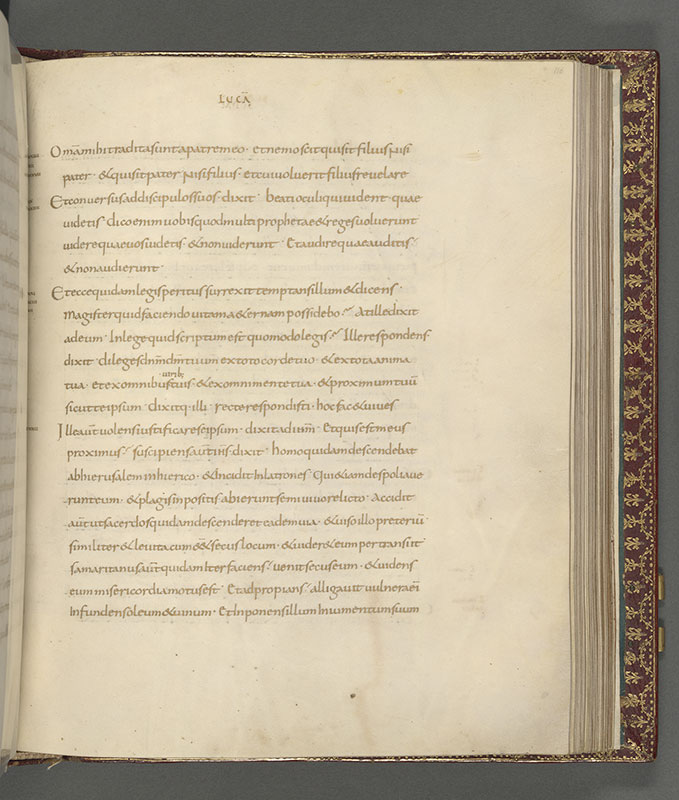 LUCĀ
Om̄amihitraditasuntapatremeo· etnemoscitquisitfiliusnisi
pater· &quisitpater nisifilius· etcuivolueritfiliusrevelare
Etconversusaddiscipulossuos· dixit· beatioculiquivident· quae
videtis· dicoenimvobisquodmultiprophetae&regesvoluerunt
viderequaevosvidetis· &nonviderunt· Etaudirequaeauditis·
&nonaudierunt·
Eteccequidamlegisperitussurrexittemptansillum&dicens·
Magisterquidfaciendovitamaet&ernampossidebo· Atilledixit
adeum· Inlegequidscriptumest quomodolegis· Illerespondens
dixit· diligesdn̄mdm̄tuumextotocordetuo· &extotaanima
tua· etexomnibusviribtuis· &exomnimentetua· &proximumtuū
sicutteipsum· dixitq· illi· recterespondisti· hocfac&vives
Illeaut̄volensiustificareseipsum· dixitadih̄m· Etquisestmeus
proximus· suscipiensaut̄ih̄s dixit· homoquidamdescendebat
abhierusaleminhierico· &incidit inlatrones· Qui&iamdespoliave
runteum· &plagisinpositis abieruntsemivivorelicto· Accidit
aut̄utsacerdosquidamdescenderet eademvia· &visoillopreteriū
similiter&levitacumēē&secuslocum· &vider&eumpertransiit
samaritanusaut̄quidamiterfaciens· venitsecuseum· &videns
eummisericordiamotusest· Etadpropians· alligavit vulneraei
Infundensoleum&vinum· Etinponensilluminiumentumsuum